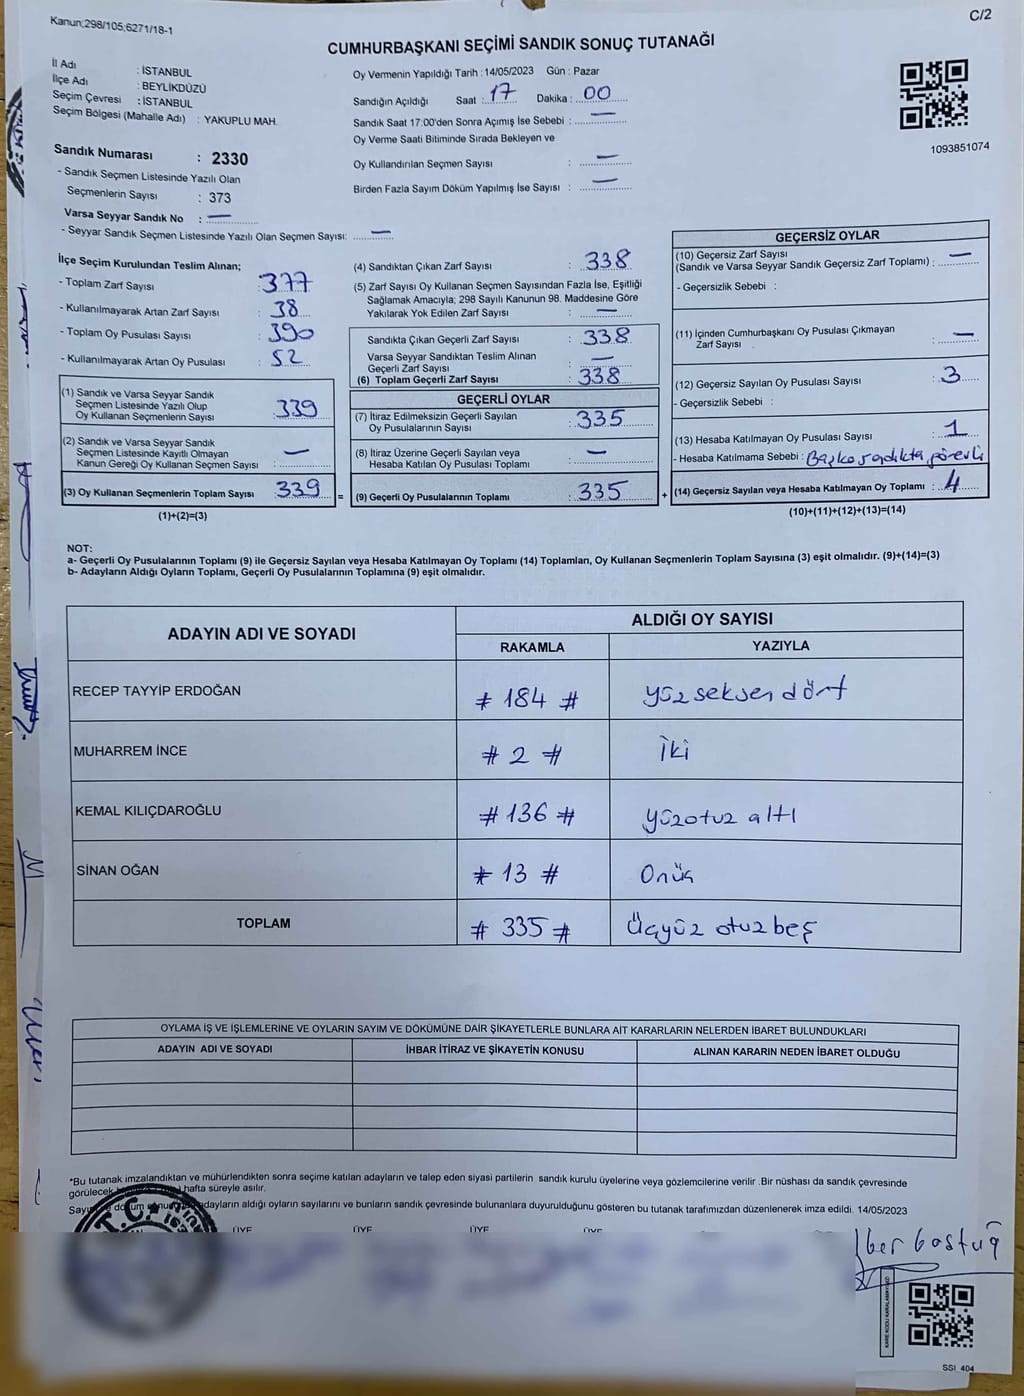 Kanun:298/105;6271/18-1
C/2
CUMHURBAŞKANI SEÇİMİ SANDIK SONUÇ TUTANAĞI
İl Adı : İSTANBUL
İlçe Adı : BEYLİKDÜZÜ
Seçim Çevresi : İSTANBUL
Seçim Bölgesi (Mahalle Adı) : YAKUPLU MAH.
Sandık Numarası : 2330
- Sandık Seçmen Listesinde Yazılı Olan
Seçmenlerin Sayısı : 373
Varsa Seyyar Sandık No : —
- Seyyar Sandık Seçmen Listesinde Yazılı Olan Seçmen Sayısı: —
Oy Vermenin Yapıldığı Tarih : 14/05/2023 Gün : Pazar
Sandığın Açıldığı Saat : 17 Dakika : 00
Sandık Saat 17:00'den Sonra Açımış İse Sebebi : —
Oy Verme Saati Bitiminde Sırada Bekleyen ve
Oy Kullandırılan Seçmen Sayısı : —
Birden Fazla Sayım Döküm Yapılmış İse Sayısı : —
1093851074
İlçe Seçim Kurulundan Teslim Alınan;
- Toplam Zarf Sayısı : 377
- Kullanılmayarak Artan Zarf Sayısı : 38
- Toplam Oy Pusulası Sayısı : 390
- Kullanılmayarak Artan Oy Pusulası : 52
(1) Sandık ve Varsa Seyyar Sandık
Seçmen Listesinde Yazılı Olup
Oy Kullanan Seçmenlerin Sayısı : 339
(2) Sandık ve Varsa Seyyar Sandık
Seçmen Listesinde Kayıtlı Olmayan
Kanun Gereği Oy Kullanan Seçmen Sayısı : —
(3) Oy Kullanan Seçmenlerin Toplam Sayısı 339
(1)+(2)=(3)
(4) Sandıktan Çıkan Zarf Sayısı : 338
(5) Zarf Sayısı Oy Kullanan Seçmen Sayısından Fazla İse, Eşitliği
Sağlamak Amacıyla; 298 Sayılı Kanunun 98. Maddesine Göre
Yakılarak Yok Edilen Zarf Sayısı : —
Sandıkta Çıkan Geçerli Zarf Sayısı : 338
Varsa Seyyar Sandıktan Teslim Alınan
Geçerli Zarf Sayısı : —
(6) Toplam Geçerli Zarf Sayısı : 338
GEÇERLİ OYLAR
(7) İtiraz Edilmeksizin Geçerli Sayılan
Oy Pusulalarının Sayısı : 335
(8) İtiraz Üzerine Geçerli Sayılan veya
Hesaba Katılan Oy Pusulası Toplamı : —
= (9) Geçerli Oy Pusulalarının Toplamı : 335 +
GEÇERSİZ OYLAR
(10) Geçersiz Zarf Sayısı
(Sandık ve Varsa Seyyar Sandık Geçersiz Zarf Toplamı) : —
- Geçersizlik Sebebi :
(11) İçinden Cumhurbaşkanı Oy Pusulası Çıkmayan
Zarf Sayısı : —
(12) Geçersiz Sayılan Oy Pusulası Sayısı : 3
- Geçersizlik Sebebi :
(13) Hesaba Katılmayan Oy Pusulası Sayısı : 1
- Hesaba Katılmama Sebebi : Başka sandıkta görevli
(14) Geçersiz Sayılan veya Hesaba Katılmayan Oy Toplamı : 4
(10)+(11)+(12)+(13)=(14)
NOT:
a- Geçerli Oy Pusulalarının Toplamı (9) ile Geçersiz Sayılan veya Hesaba Katılmayan Oy Toplamı (14) Toplamları, Oy Kullanan Seçmenlerin Toplam Sayısına (3) eşit olmalıdır. (9)+(14)=(3)
b- Adayların Aldığı Oyların Toplamı, Geçerli Oy Pusulalarının Toplamına (9) eşit olmalıdır.
ADAYIN ADI VE SOYADI
ALDIĞI OY SAYISI
RAKAMLA YAZIYLA
RECEP TAYYİP ERDOĞAN # 184 # yüz seksen dört
MUHARREM İNCE # 2 # iki
KEMAL KILIÇDAROĞLU # 136 # yüzotuz altı
SİNAN OĞAN # 13 # Onüç
TOPLAM # 335 # Üçyüz otuz beş
OYLAMA İŞ VE İŞLEMLERİNE VE OYLARIN SAYIM VE DÖKÜMÜNE DAİR ŞİKAYETLERLE BUNLARA AİT KARARLARIN NELERDEN İBARET BULUNDUKLARI
ADAYIN ADI VE SOYADI İHBAR İTİRAZ VE ŞİKAYETİN KONUSU ALINAN KARARIN NEDEN İBARET OLDUĞU
*Bu tutanak imzalandıktan ve mühürlendikten sonra seçime katılan adayların ve talep eden siyasi partilerin sandık kurulu üyelerine veya gözlemcilerine verilir .Bir nüshası da sandık çevresinde
görülecek hafta süreyle asılır.
adayların aldığı oyların sayılarını ve bunların sandık çevresinde bulunanlara duyurulduğunu gösteren bu tutanak tarafımızdan düzenlenerek imza edildi. 14/05/2023
T.C.
ÜYE ÜYE ÜYE ÜYE
KARE KODU KARALAMAYINIZ!
SSI 404